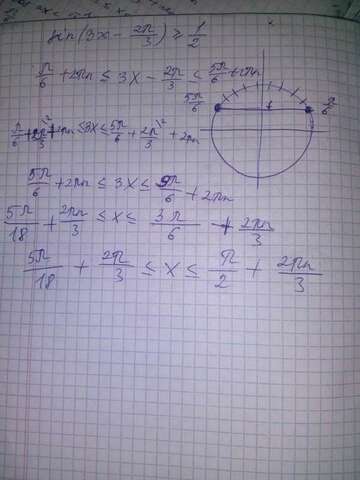 sin(3x - 2π/3) ≥ 1/2
π/6 + 2πn ≤ 3x - 2π/3 ≤ 5π/6 + 2πn
5π/6 π/6
π/6 + 2π/3 + 2πn ≤ 3x ≤ 5π/6 + 2π/3 + 2πn
5π/6 + 2πn ≤ 3x ≤ 9π/6 + 2πn
5π/18 + 2πn/3 ≤ x ≤ 3π/6 + 2πn/3
5π/18 + 2π/3 ≤ x ≤ π/2 + 2πn/3